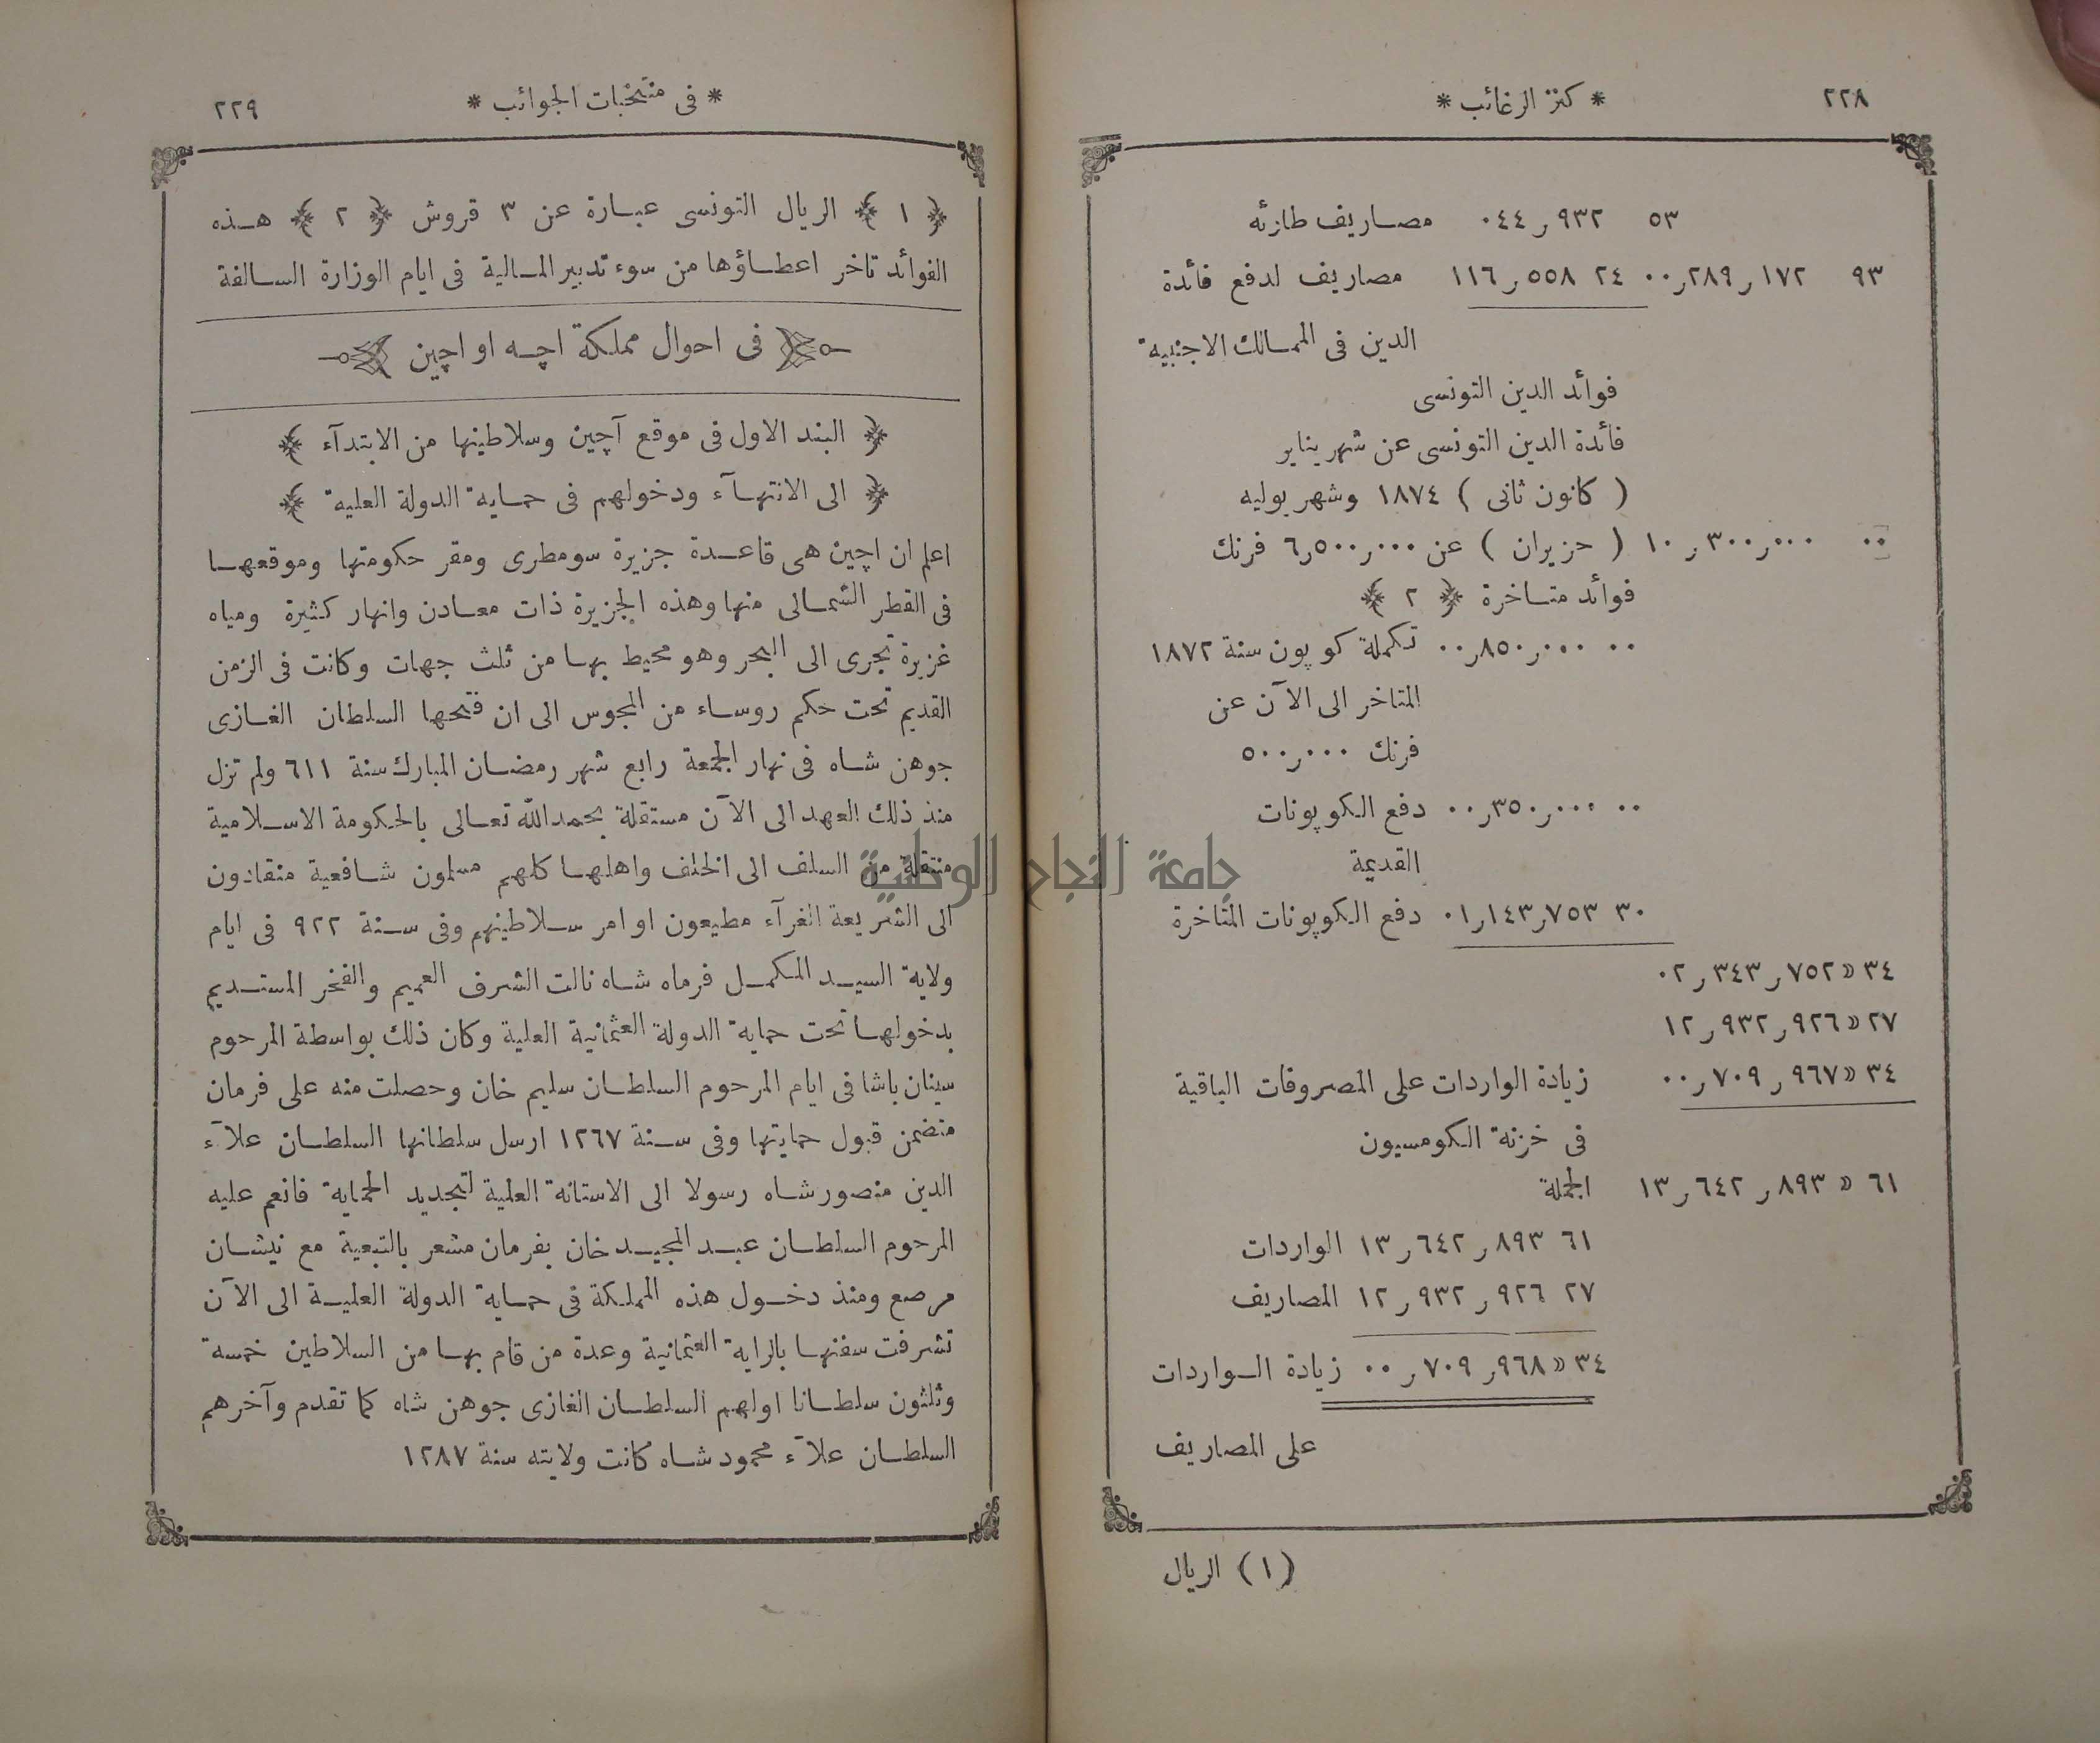 ٢٢٨
* كنز الرغائب *
٥٣ ٩٣٢ر٠٤٤ مصاريف طارئه
٩٣ ١٧٢ر٢٨٩ر٠٠ ٢٤ ٥٥٨ر١١٦ مصاريف لدفع فائدة
الدين فى الممالك الاجنبية
فوائد الدين التونسى
فائدة الدين التونسى عن شهر يناير
( كانون ثانى ) ١٨٧٤ وشهر يوليه
٠٠ ٠٠٠ر٣٠٠ر١٠ ( حزيران ) عن ٠٠٠ر٥٠٠ر٦ فرنك
فوائد متاخرة ﴿ ٢ ﴾
٠٠ ٠٠٠ر٨٥٠ر٠٠ تكملة كوپون سنة ١٨٧٢
المتاخر الى الآن عن
فرنك ٠٠٠ر٥٠٠
٠٠ ٠٠٠ر٣٥٠ر٠٠ دفع الكوپونات
القديمة
٣٠ ٧٥٣ر١٤٣ر٠١ دفع الكوپونات المتاخرة
٣٤ » ٧٥٢ر٣٤٣ر٠٢
٢٧ » ٩٢٦ر٩٣٢ر١٢
٣٤ » ٩٦٧ر٧٠٩ر٠٠ زيادة الواردات على المصروفات الباقية
فى خزنة الكومسيون
٦١ » ٨٩٣ر٦٤٢ر١٣ الجملة
٦١ ٨٩٣ر٦٤٢ر١٣ الواردات
٢٧ ٩٢٦ر٩٣٢ر١٢ المصاريف
٣٤ » ٩٦٨ر٧٠٩ر٠٠ زيادة الواردات
على المصاريف
(١) الريال
* فى منتخبات الجوائب *
٢٢٩
﴿ ١ ﴾ الريال التونسى عبارة عن ٣ قروش ﴿ ٢ ﴾ هذه
الفوائد تاخر اعطاؤها من سوء تدبير المالية فى ايام الوزارة السالفة
فى احوال مملكة اچه او اچين
﴿ البند الاول فى موقع آچين وسلاطينها من الابتدآء ﴾
﴿ الى الانتهآء ودخولهم فى حماية الدولة العلية ﴾
اعلم ان اچين هى قاعدة جزيرة سومطرى ومقر حكومتها وموقعها
فى القطر الشمالى منها وهذه الجزيرة ذات معادن وانهار كثيرة ومياه
غزيرة تجرى الى البحر وهو محيط بها من ثلث جهات وكانت فى الزمن
القديم تحت حكم روساء من المجوس الى ان فتحها السلطان الغازى
جوهن شاه فى نهار الجمعة رابع شهر رمضان المبارك سنة ٦١١ ولم تزل
منذ ذلك العهد الى الآن مستقلة بحمد الله تعالى بالحكومة الاسلامية
منتقلة من السلف الى الخلف واهلها كلهم مسلمون شافعية منقادون
الى الشريعة الغرآء مطيعون اوامر سلاطينهم وفى سنة ٩٢٢ فى ايام
ولاية السيد المكمل فرماه شاه نالت الشرف العميم والفخر المستديم
بدخولها تحت حماية الدولة العثمانية العلية وكان ذلك بواسطة المرحوم
سينان باشا فى ايام المرحوم السلطان سليم خان وحصلت منه على فرمان
متضمن قبول حمايتها وفى سنة ١٢٦٧ ارسل سلطانها السلطان علآء
الدين منصور شاه رسولا الى الاستانة العلية لتجديد الحماية فانعم عليه
المرحوم السلطان عبد المجيد خان بفرمان مشعر بالتبعية مع نيشان
مرصع ومنذ دخول هذه المملكة فى حماية الدولة العلية الى الآن
تشرفت سفنها بالراية العثمانية وعدة من قام بها من السلاطين خمسة
وثلثون سلطانا اولهم السلطان الغازى جوهن شاه كما تقدم وآخرهم
السلطان علآء محمود شاه كانت ولايته سنة ١٢٨٧
جامعة النجاح الوطنية